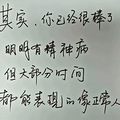 其实、你已经很棒了
明明有精神病
但大部分时间
都能表现的像正常人